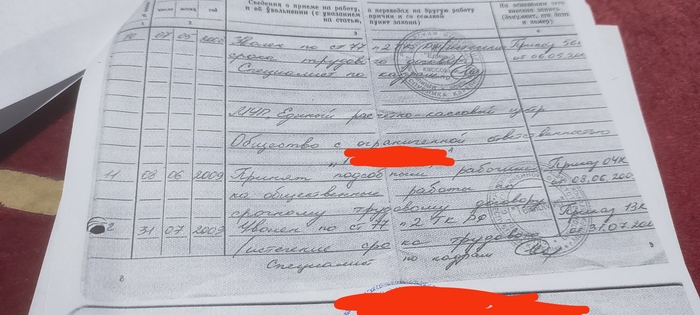 Сведения о приеме на работу, о переводах на другую работу
и об увольнении (с указанием причин и со ссылкой
на статью, пункт закона)
число месяц год
1 2 3 4
10 07 05
Уволен по ст 77 п 2 ТК РФ Приказ
срока трудового договора от 06.05.
Специалист по кадрам
МУП Единый расчетно-кассовый центр
Общество с ограниченной ответственностью
11 08 06 2009 Принят подсобным рабочим Приказ 04к
на общественные работы по от 08.06.
срочному трудовому договору
31 07 2009 Уволен по ст 77 п 2 ТК РФ Приказ 13к
(истечение срока трудового от 31.07.
Специалист по кадрам
8 9